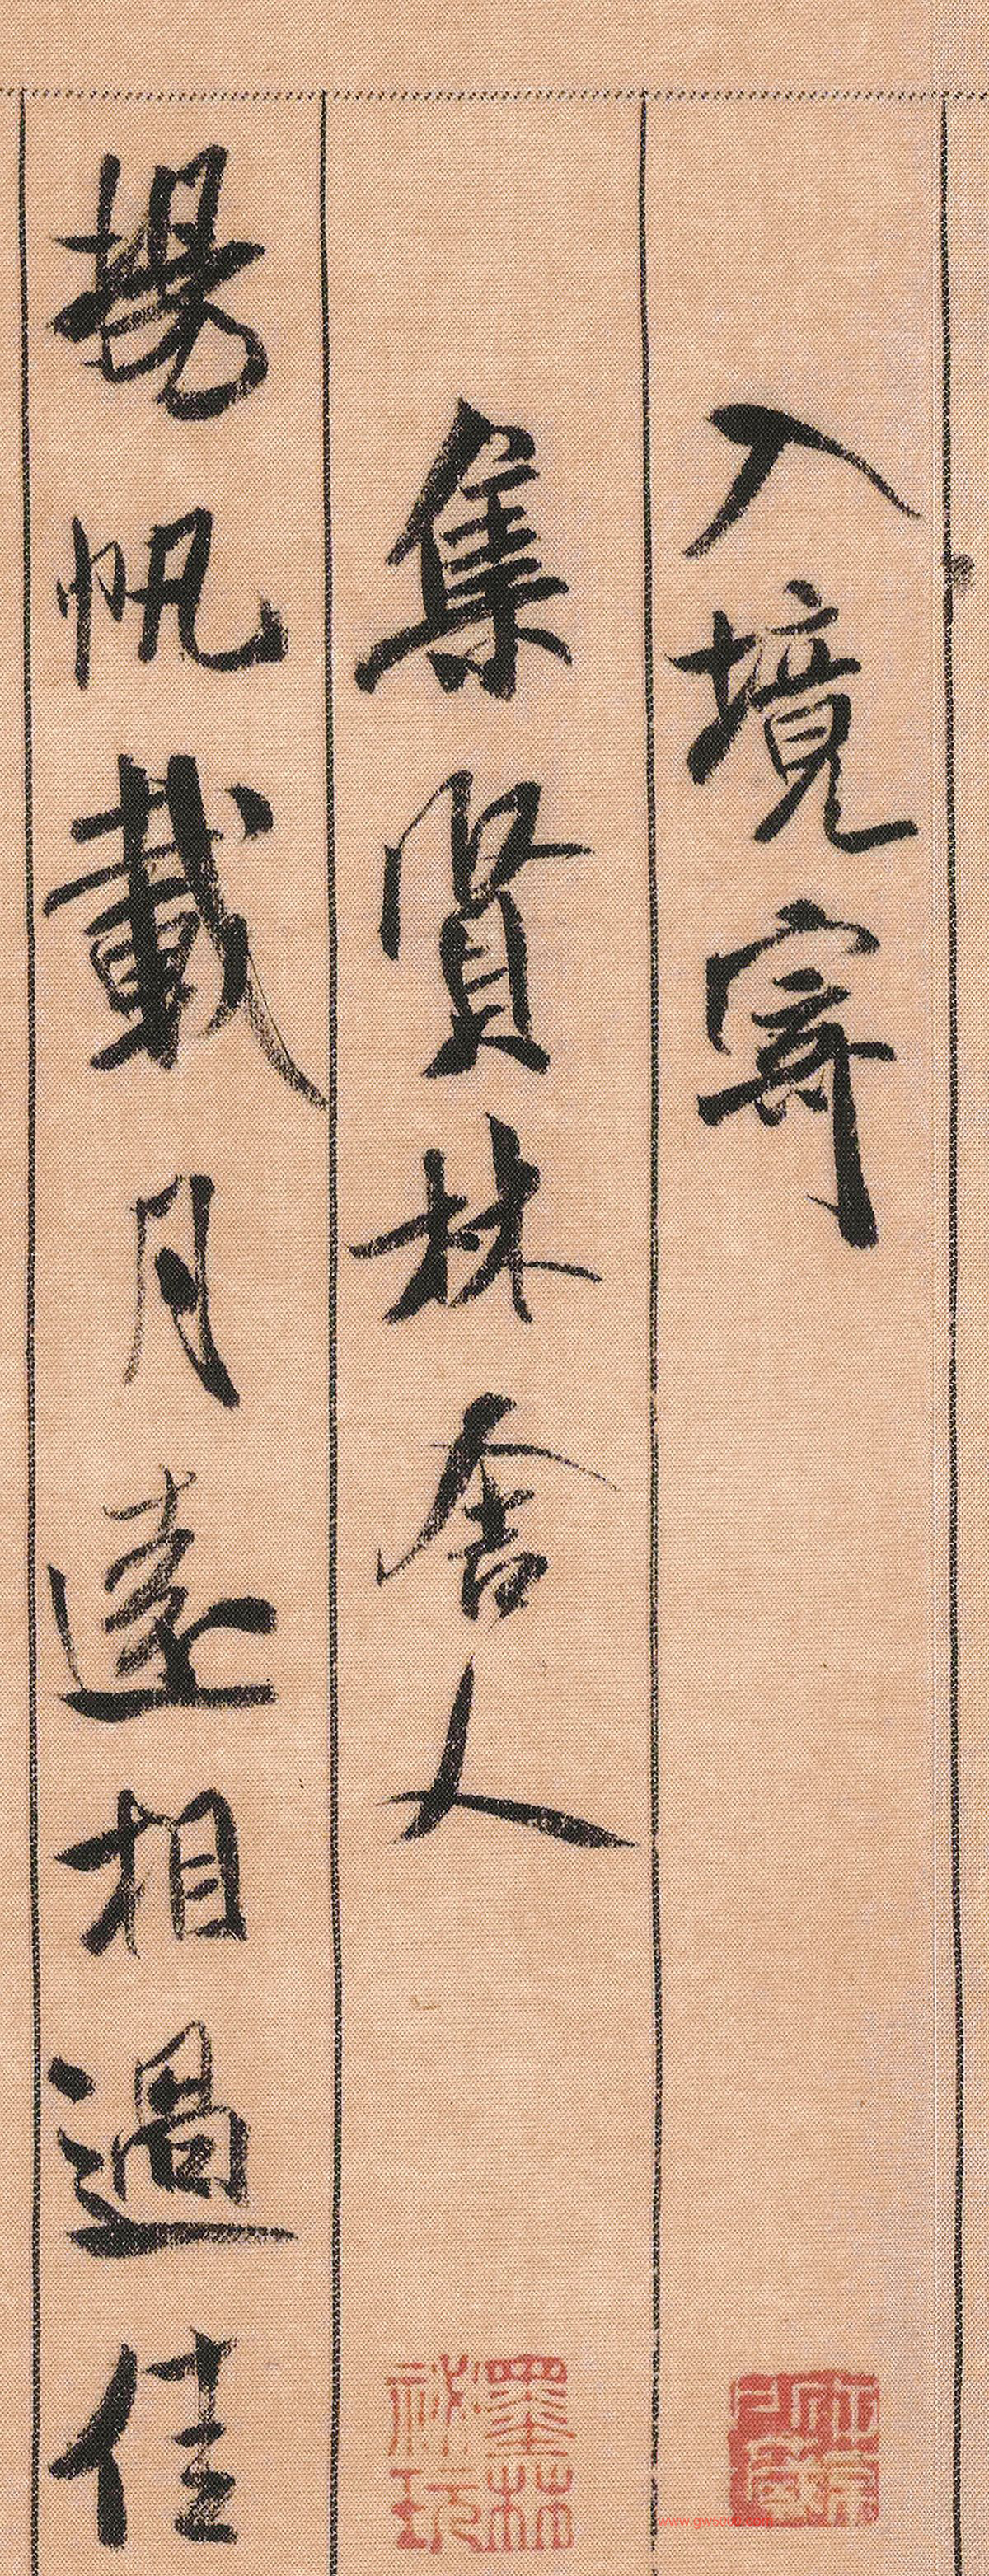 入境寄
集賢林舍人
揚帆載月遠相過佳
墨林
祕玩